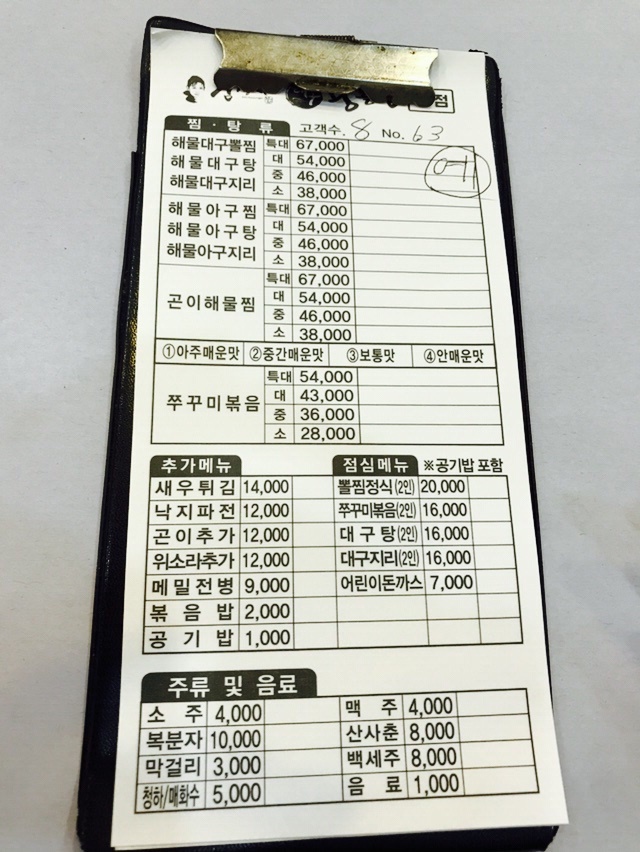 점
찜·탕류 고객수. 8 No. 63
해물대구뽈찜 특대 67,000
해물대구탕 대 54,000
해물대구지리 중 46,000
소 38,000
해물아구찜 특대 67,000
해물아구탕 대 54,000
해물아구지리 중 46,000
소 38,000
곤이해물찜 특대 67,000
대 54,000
중 46,000
소 38,000
①아주매운맛 ②중간매운맛 ③보통맛 ④안매운맛
쭈꾸미볶음 특대 54,000
대 43,000
중 36,000
소 28,000
추가메뉴
새우튀김 14,000
낙지파전 12,000
곤이추가 12,000
위소라추가 12,000
메밀전병 9,000
볶음밥 2,000
공기밥 1,000
점심메뉴 ※공기밥 포함
뽈찜정식(2인) 20,000
쭈꾸미볶음(2인) 16,000
대구탕(2인) 16,000
대구지리(2인) 16,000
어린이돈까스 7,000
주류 및 음료
소주 4,000
복분자 10,000
막걸리 3,000
청하/매화수 5,000
맥주 4,000
산사춘 8,000
백세주 8,000
음료 1,000